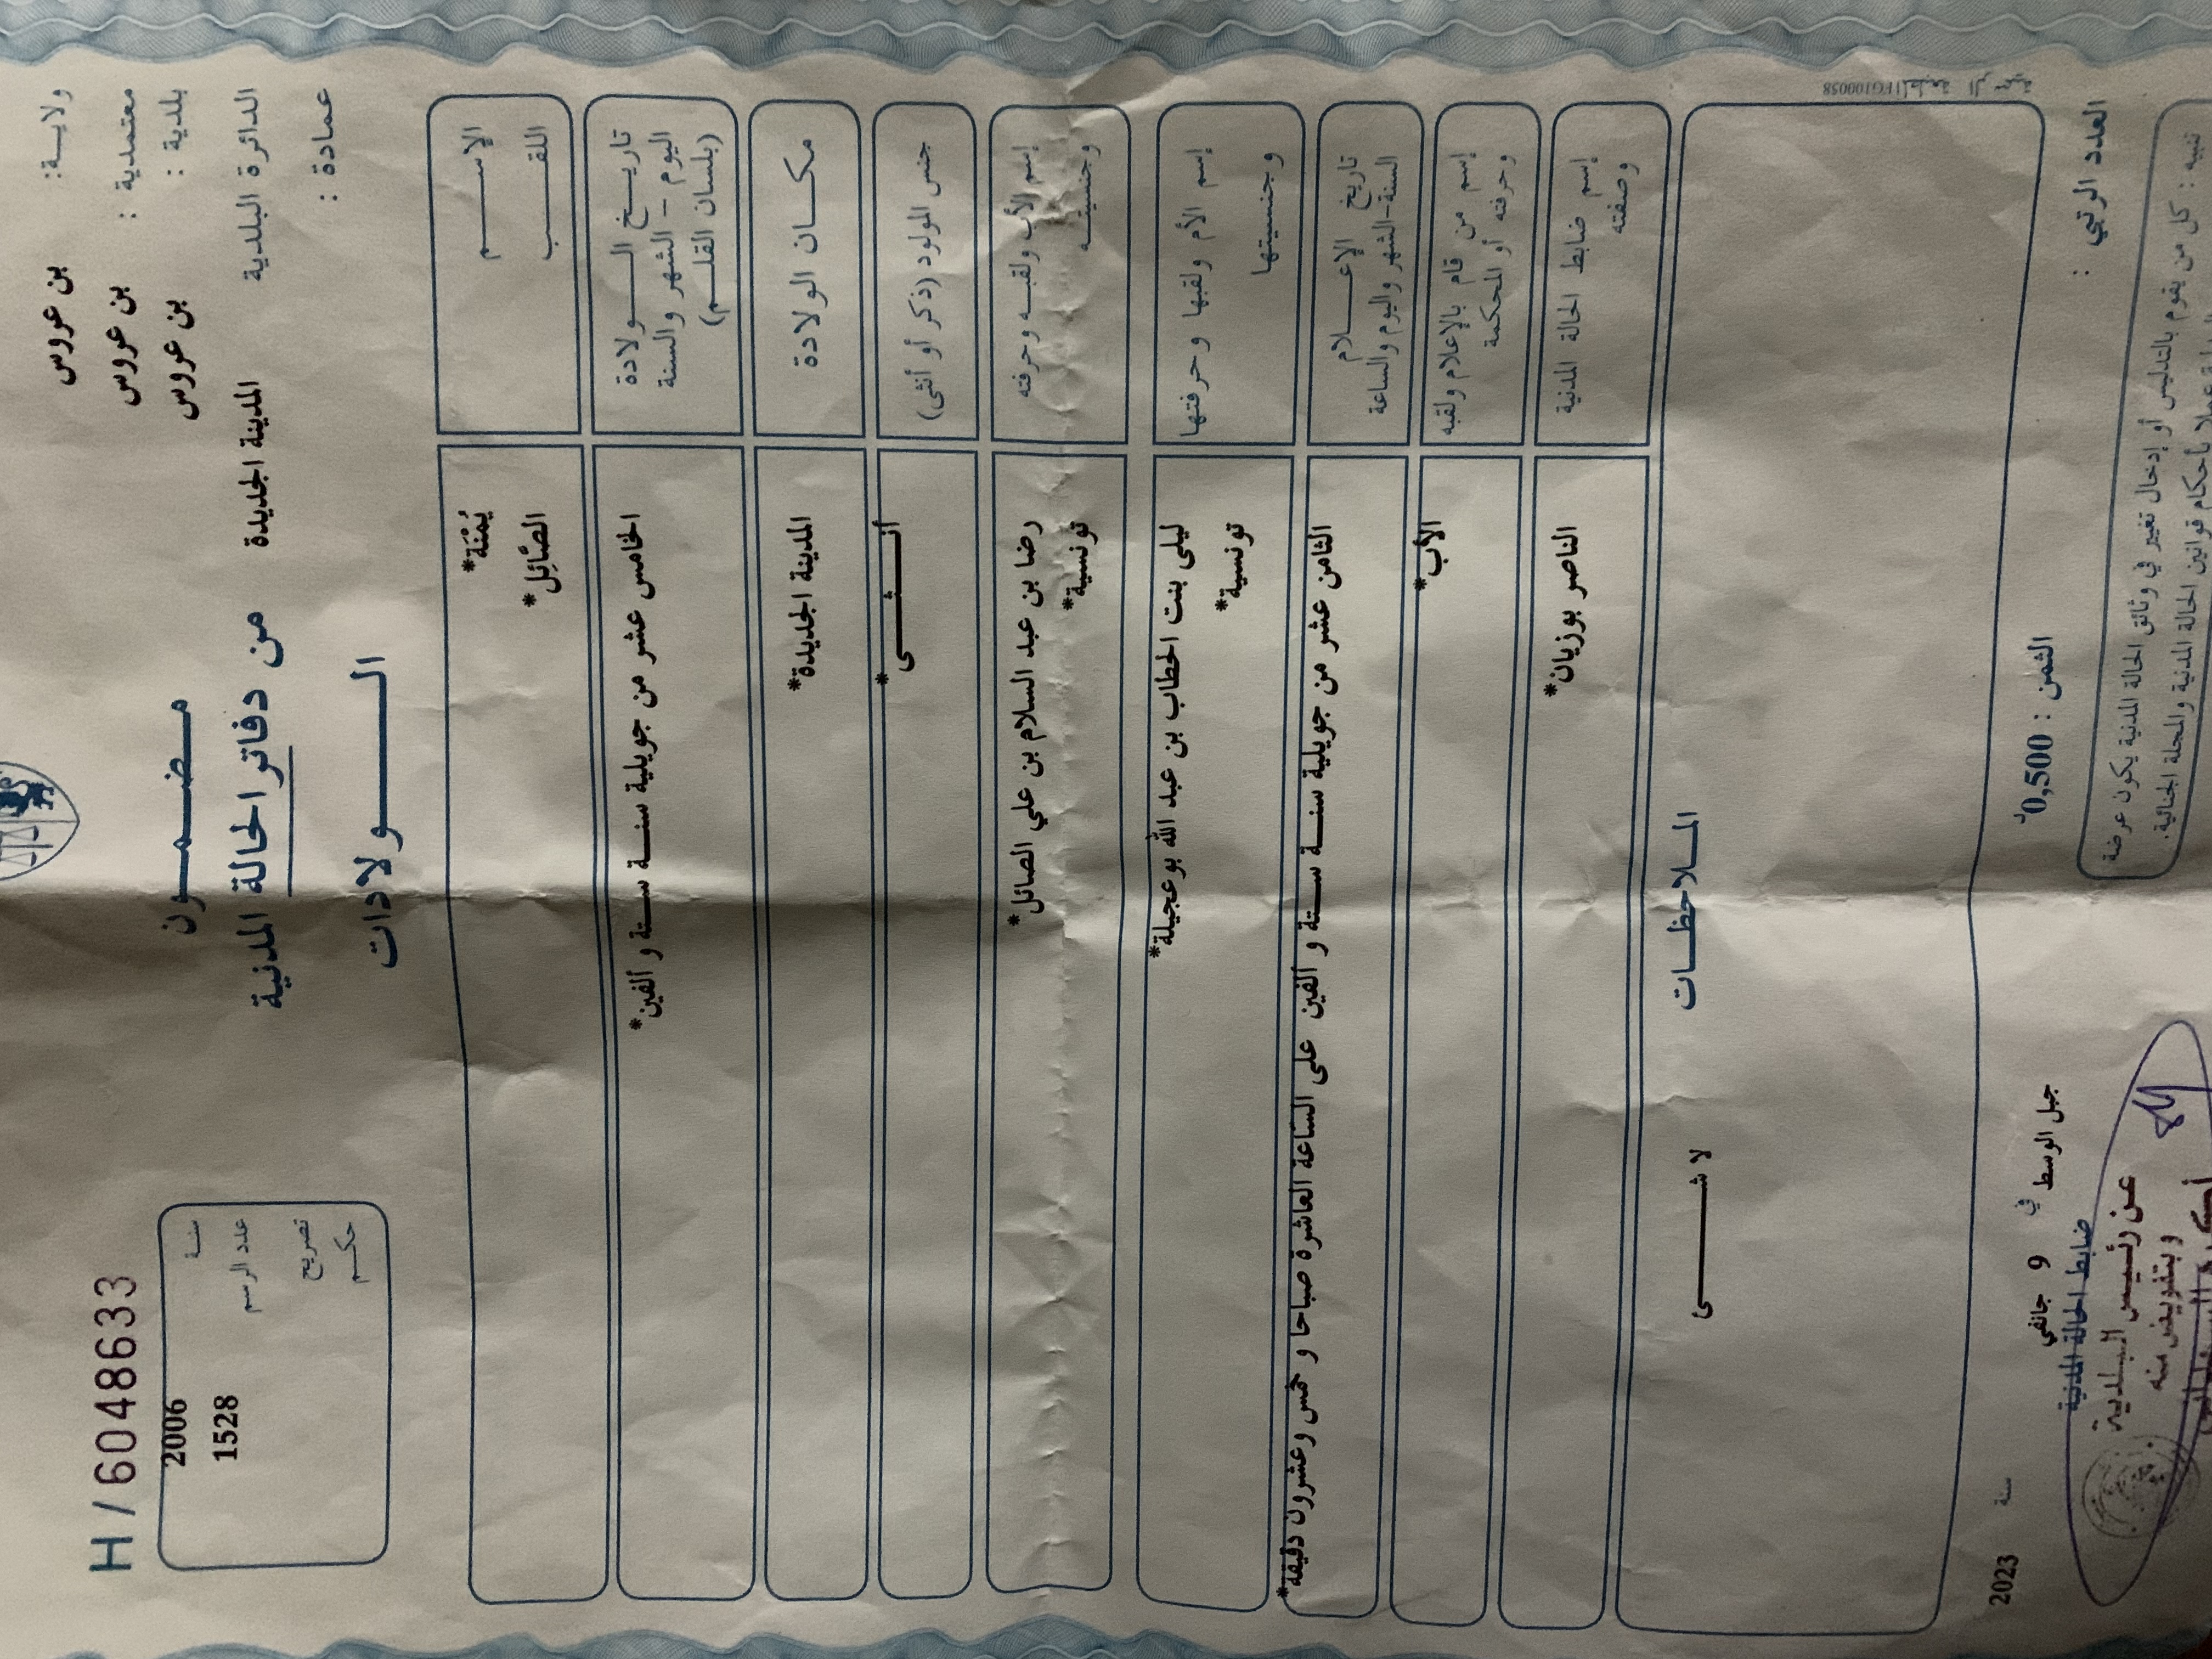 ولايـــة: بن عروس
معتمدية : بن عروس
بلدية : بن عروس
الدائرة البلدية المدينة الجديدة
عمادة :
مـضـمــون
من دفاتر الحالة المدنية
الـــولادات
H / 6048633
سنـة 2006
عدد الرسم 1528
تصريح
حكـم
الإســـــم يُمْنَة*
اللقــــب الصَّائِل*
تاريـــخ الـــــولادة
اليوم – الشهر والسنة
(بلسان القلــم)
الخامس عشر من جويلية سنـــة ستـــة و ألفين*
مكـــان الولادة المدينة الجديدة*
جنس المولود (ذكر أو أنثى) أنـــــثــــى*
إسم الأب ولقبـه وحرفته
وجنسيتـــه
رضا بن عبد السلام بن علي الصائل*
تونسية*
إسم الأم ولقبها وحرفتها
وجنسيتها
ليلى بنت الحطاب بن عبد الله بوعجيلة*
تونسية*
تاريخ الإعــــلام
السنة-الشهر واليوم والساعة
الثامن عشر من جويلية سنـــة ستـــة و ألفين على الساعة العاشرة صباحا و خمس وعشرون دقيقة*
إسم من قام بالإعلام ولقبه
وحرفته أو المحكمة
الأب*
إسم ضابط الحالة المدنية
وصفته
الناصر بوزيان*
المــلاحظــات
لا شـــــــئ
العدد الرتبي :
الثمن : 0,500د
جبل الوسط في 9 جانفي سنة 2023
ضابط الحالة المدنية
عن رئيــس البــلدية
وبتفويض منه
تنبيه : كل من يقوم بالتدليس أو إدخال تغيير في وثائق الحالة المدنية يكون عرضة
عملا بأحكام قوانين الحالة المدنية والمجلة الجنائية.